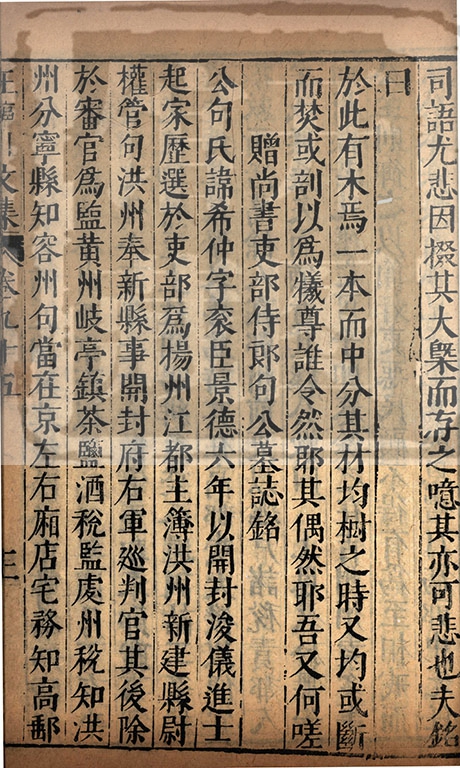 司語尤悲因掇其大槩而存之噫其亦可悲也夫銘
曰
於此有木焉一本而中分其材均樹之時又均或斷
而焚或剖以為犧尊誰令然耶其偶然耶吾又何嗟
贈尚書吏部侍郎句公墓誌銘
公句氏諱希仲字衮臣景德六年以開封浚儀進士
起家歷選於吏部為楊州江都主簿洪州新建縣尉
權管句洪州奉新縣事開封府右軍巡判官其後除
於審官為監黄州岐亭鎮茶鹽酒稅監處州稅知洪
州分寧縣知容州句當在京左右廂店宅務知高郵
王臨川文集 卷九十五 三